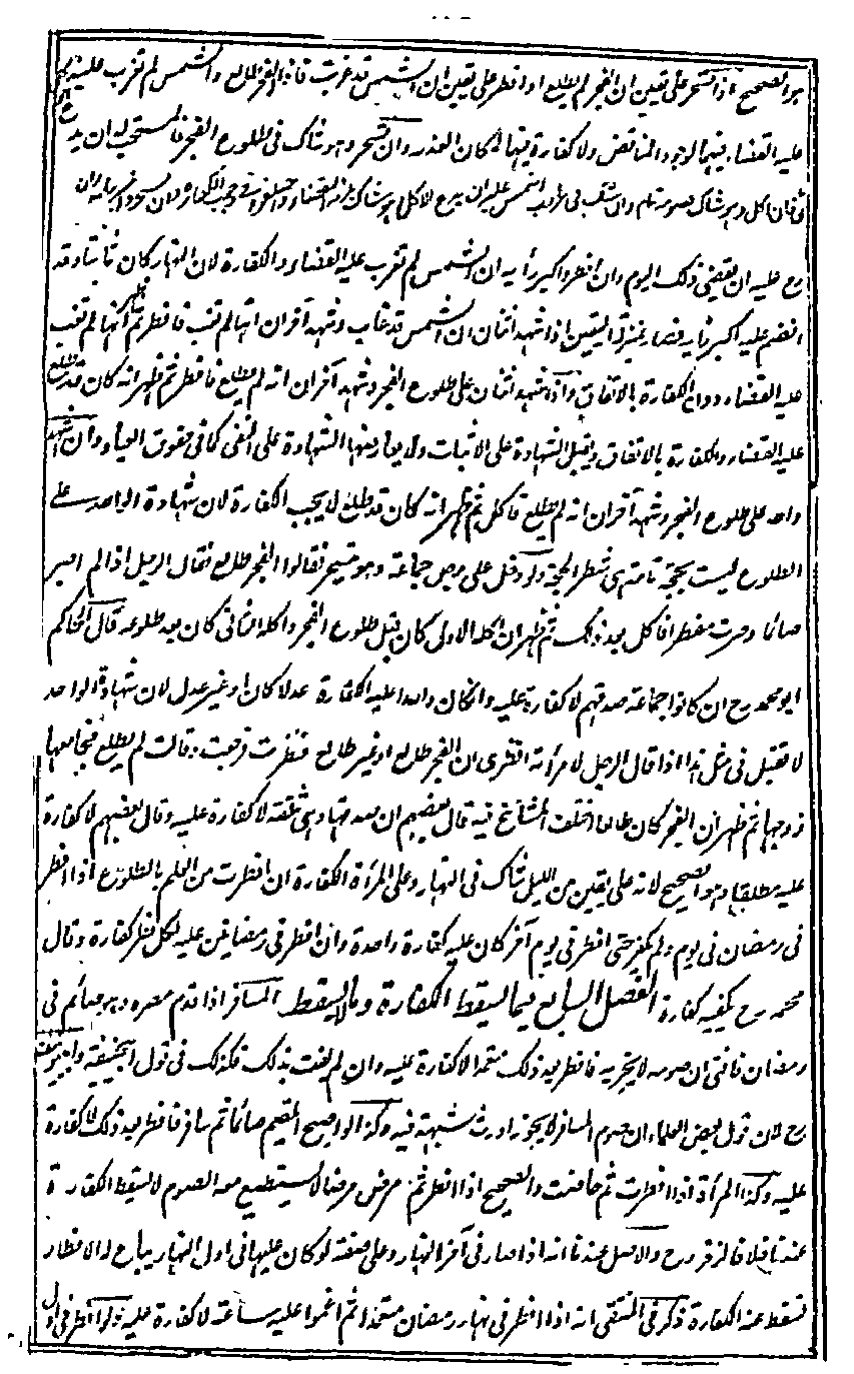 هو الصحيح اذا تسحر على يقين ان الفجر لم يطلع او افطر على يقين ان الشمس قد غربت فاذا الفجر طالع والشمس لم تغرب
عليه القضاء فيهما لوجود المناقض ولا كفارة فيهما لمكان العذر وان تسحر وهو شاك فى طلوع الفجر فالمستحب له ان يدع
فان اكل وهو شاك فصومه تام وان شك فى غروب الشمس عليه ان يدع الاكل
رح عليه ان يقضى ذلك اليوم وان افطر واكبر رأيه ان الشمس لم تغرب عليه القضاء والكفارة لان النهار كان ثابتا وقد
انضم عليه اكبر رأيه فصار بمنزلة اليقين اذا شهد اثنان ان الشمس قد غابت وشهد آخران انها لم تغب فافطر ثم ظهر انها لم تغب
عليه القضاء دون الكفارة بالاتفاق واذا شهد اثنان على طلوع الفجر وشهد آخران انه لم يطلع فافطر ثم ظهر انه كان قد طلع
عليه القضاء والكفارة بالاتفاق ويقبل الشهادة على الاثبات ولا يعارضها الشهادة على النفى كما فى حقوق العباد وان شهد
واحد على طلوع الفجر وشهد آخران انه لم يطلع فاكل ثم ظهر انه كان قد طلع لا يجب الكفارة لان شهادة الواحد على
الطلوع ليست بحجة تامة هى شطر الحجة ولو دخل على رجل جماعة وهو يتسحر فقالوا الفجر طالع فقال الرجل اذا لم اصر
صائما وصرت مفطرا فاكل بعد ذلك ثم ظهر ان اكله الاول كان قبل طلوع الفجر واكله الثانى كان بعد طلوعه قال الحاكم
ابو محمد رح ان كانوا جماعة صدقهم لا كفارة عليه وان كان واحدا عليه الكفارة عدلا كان او غير عدل لان شهادة الواحد
لا تقبل فى مثل هذا اذا قال الرجل لامرأته انظرى ان الفجر طالع او غير طالع فنظرت فرجعت وقالت لم يطلع فجامعها
زوجها ثم ظهر ان الفجر كان طالعا اختلف المشائخ فيه قال بعضهم ان صدقها وهى ثقة لا كفارة عليه وقال بعضهم لا كفارة
عليه مطلقا وهو الصحيح لانه على يقين من الليل شاك فى النهار وعلى المرأة الكفارة ان افطرت مع العلم بالطلوع اذا افطر
فى رمضان فى يوم ولم يكفر حتى افطر فى يوم آخر كان عليه كفارة واحدة وان افطر فى رمضانين عليه لكل فطر كفارة وقال
محمد رح يكفيه كفارة الفصل السابع فيما يسقط الكفارة وما لا يسقط المسافر اذا قدم مصره وهو صائم فى
رمضان فافتى ان صومه لا يجزيه فافطر بعد ذلك متعمدا لا كفارة عليه وان لم يفت بذلك فكذلك فى قول ابى حنيفة وابى يوسف
رح لان قول بعض العلماء ان صوم المسافر لا يجوز اورث شبهة فيه وكذا لو اصبح المقيم صائما ثم سافر فافطر بعد ذلك لا كفارة
عليه وكذا المرأة اذا افطرت ثم حاضت والصحيح اذا افطر ثم مرض مرضا لا يستطيع معه الصوم لا يسقط الكفارة
عندنا خلافا لزفر رح والاصل عندنا انه اذا صار فى آخر النهار على صفة لو كان عليها فى اول النهار يباح له الافطار
تسقط عنه الكفارة ذكر فى المنتقى انه اذا افطر فى نهار رمضان متعمدا ثم اغمى عليه ساعة لا كفارة عليه ولو افطر فى اول